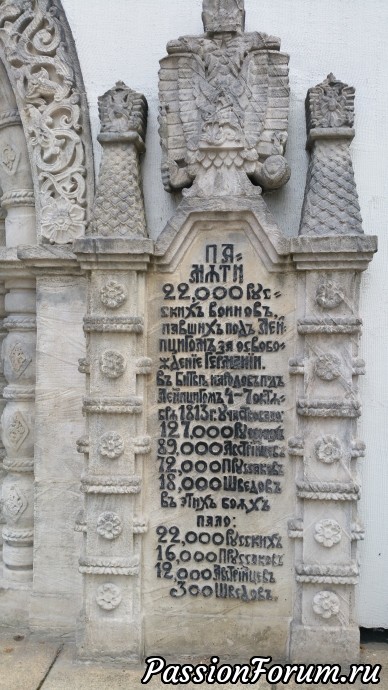 ПА-
МѦТИ
22,000 РУС-
СКИХЪ ВОИНОВЪ,
ПАВШИХЪ ПОДЪ ЛЕЙ-
ПЦИГОМЪ ЗА ОСВОБО-
ЖДЕНІЕ ГЕРМАНІИ.
ВЪ БИТВѢ НАРОДОВЪ ПОДЪ
ЛЕЙПЦИГОМЪ 4-7 ОКТѦ-
БРѦ 1813 Г. УЧАСТВОВАЛО:
127,000 РУССКИХЪ
89,000 АВСТРІЙЦЕВЪ
72,000 ПРУССАКОВЪ
18,000 ШВЕДОВЪ
ВЪ ЭТИХЪ БОѦХЪ
ПАЛО:
22,000 РУССКИХЪ
16,000 ПРУССАКОВЪ
12,000 АВСТРІЙЦЕВЪ
300 ШВЕДОВЪ.
PassionForum.ru